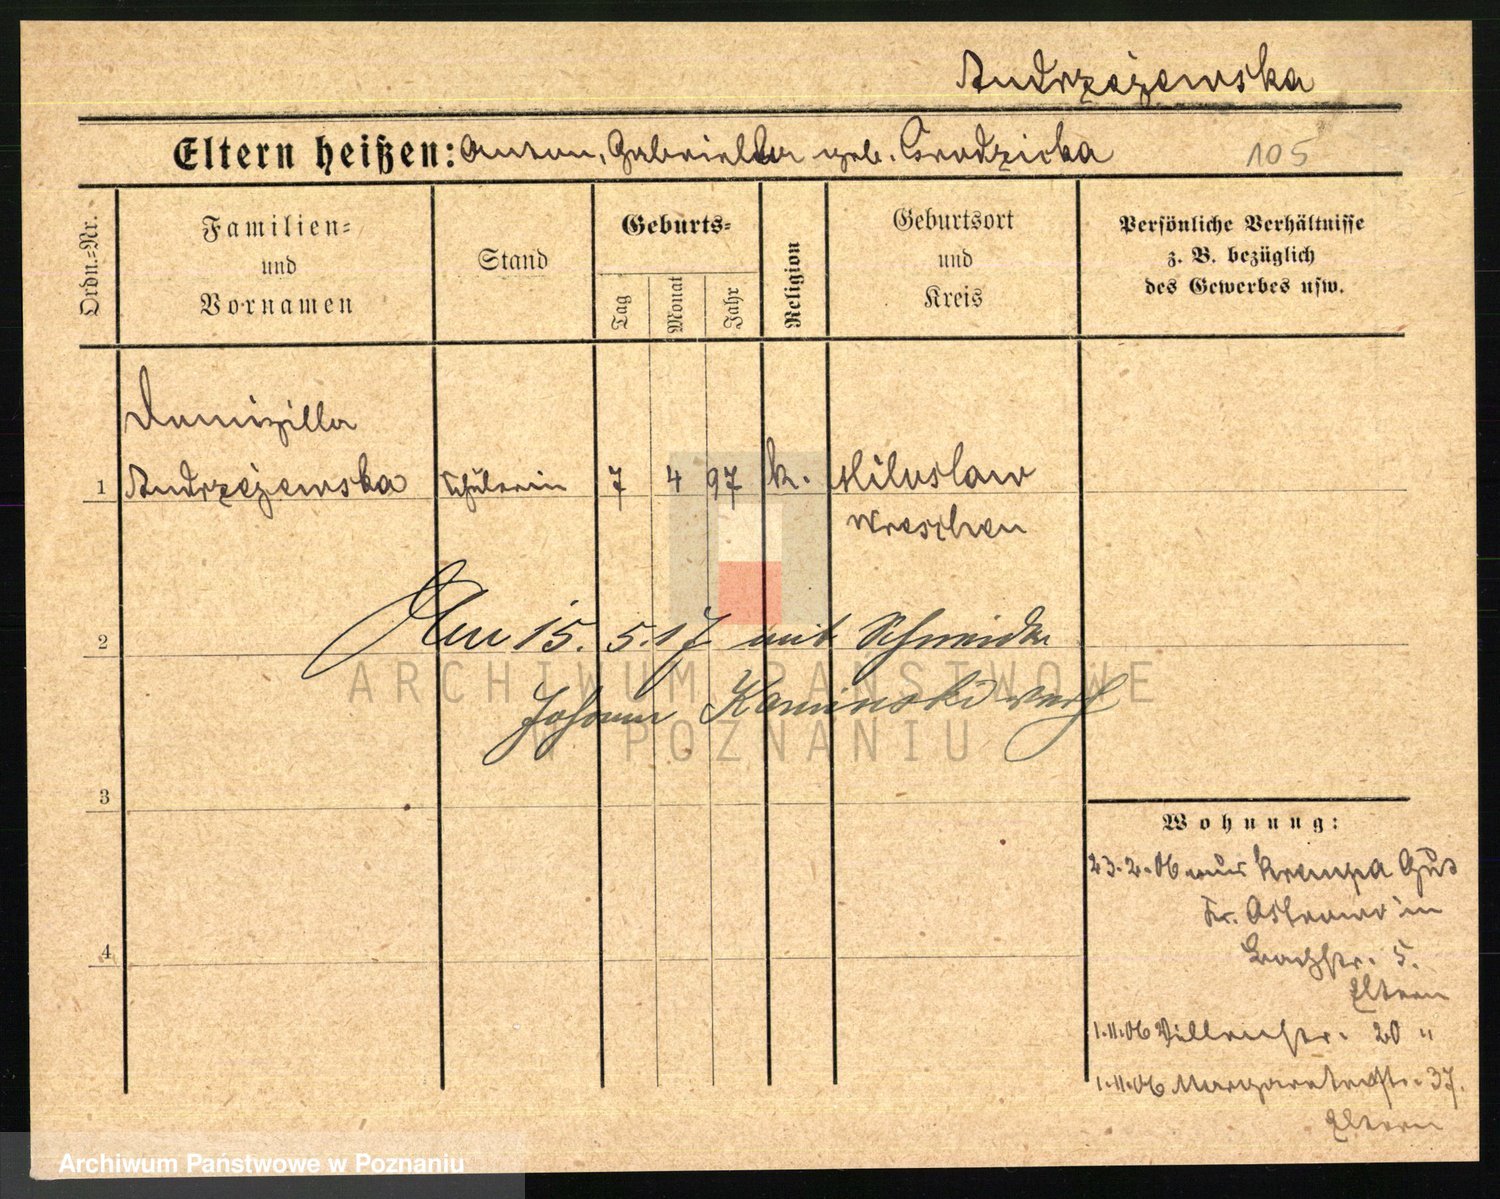 Andrzejewska
Eltern heißen: Anton, Gabriella geb. Grodzicka 105
Ordn.-Nr.
Familien- und Vornamen
Stand
Geburts-
Tag
Monat
Jahr
Religion
Geburtsort und Kreis
Persönliche Verhältnisse
z. B. bezüglich
des Gewerbes usw.
Domizilla
1 Andrzejewska Schülerin 7 4 97 k. Miloslaw
Wreschen
2 Am 15. 5. 17 mit Schneider
Johann Kaminski verh
ARCHIWUM PAŃSTWOWE
W POZNANIU
3
Wohnung:
23.2.06 aus Krempa Gut
Kr. Ostrowo in
Bachstr. 5.
4
Eltern
1.11.06 Villenstr. 20 "
1.11.06 Margaretenstr. 37.
Eltern
Archiwum Państwowe w Poznaniu